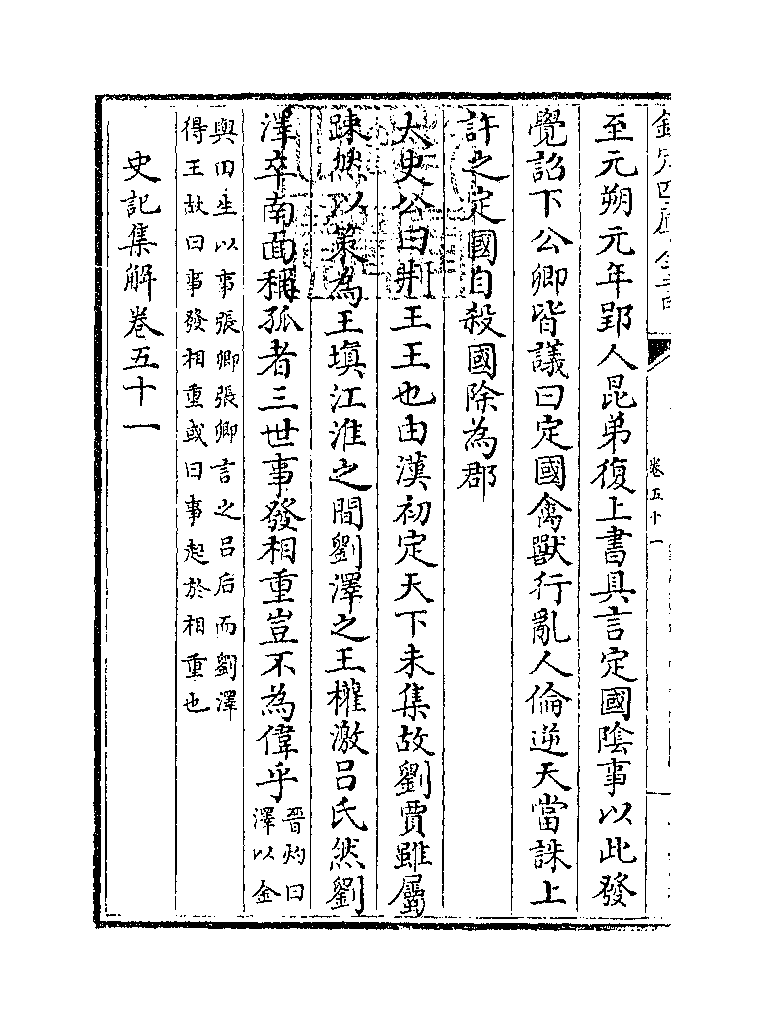 欽定四庫全書
卷五十一
至元朔元年郢人昆弟復上書具言定國陰事以此發
覺詔下公卿皆議曰定國禽獸行亂人倫逆天當誅上
許之定國自殺國除為郡
太史公曰荆王王也由漢初定天下未集故劉賈雖屬
踈然以策為王填江淮之間劉澤之王權激吕氏然劉
澤卒南面稱孤者三世事發相重豈不為偉乎
晉灼曰
澤以金
與田生以事張卿張卿言之吕后而劉澤
得王故曰事發相重或曰事起於相重也
史記集解卷五十一